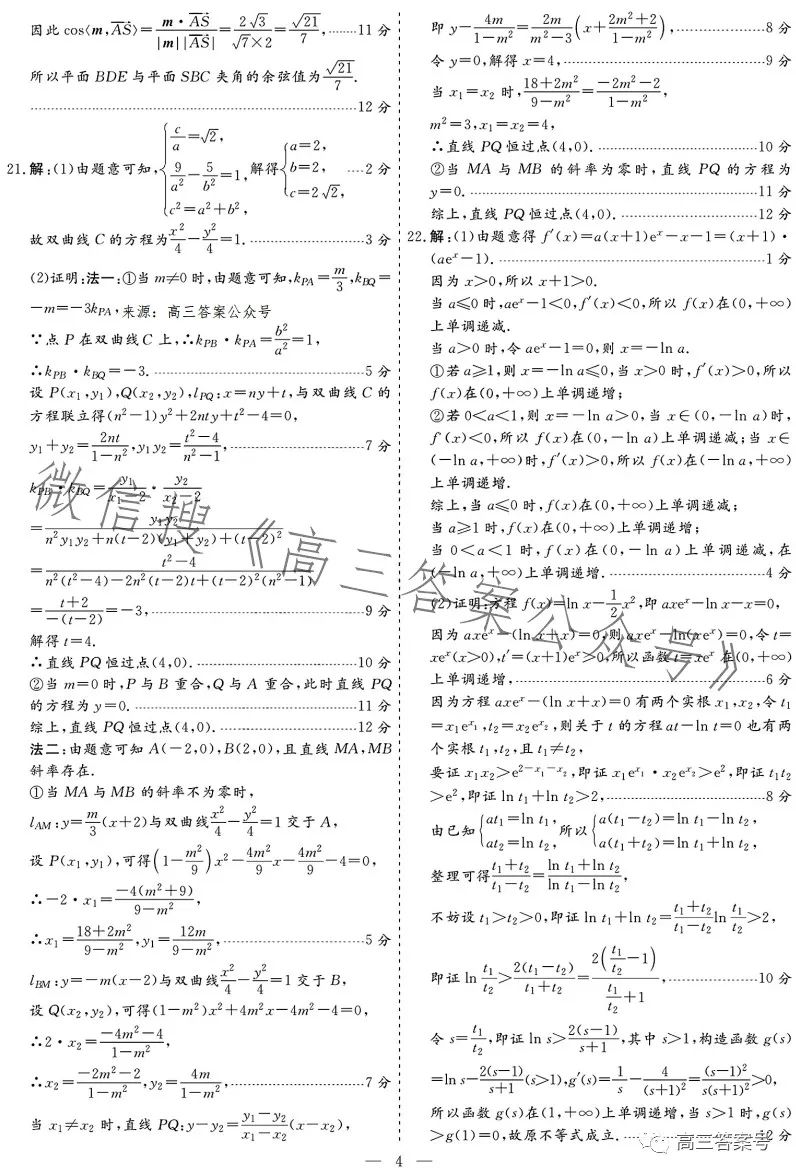 因此 cos⟨m,AS⟩=m·AS/|m||AS|=2√3/(√7×2)=√21/7,……11 分
所以平面 BDE 与平面 SBC 夹角的余弦值为√21/7.
……12 分
21.解:(1)由题意可知,{c/a=√2, 9/a²-5/b²=1, c²=a²+b², 解得{a=2, b=2, c=2√2, ……2 分
故双曲线 C 的方程为x²/4-y²/4=1.……3 分
(2)证明:法一:①当 m≠0 时,由题意可知,k_PA=m/3,k_BQ=
-m=-3k_PA,来源:高三答案公众号
∵点 P 在双曲线 C 上,∴k_PB·k_PA=b²/a²=1,
∴k_PB·k_BQ=-3.……5 分
设 P(x₁,y₁),Q(x₂,y₂),l_PQ:x=ny+t,与双曲线 C 的
方程联立得(n²-1)y²+2nty+t²-4=0,
y₁+y₂=2nt/(1-n²),y₁y₂=(t²-4)/(n²-1),……7 分
k_PB·k_BQ=y₁/(x₁-2)·y₂/(x₂-2)
=y₁y₂/(n²y₁y₂+n(t-2)(y₁+y₂)+(t-2)²)
=(t²-4)/(n²(t²-4)-2n²(t-2)t+(t-2)²(n²-1))
=(t+2)/(-(t-2))=-3,……9 分
解得 t=4.
∴直线 PQ 恒过点(4,0).……10 分
②当 m=0 时,P 与 B 重合,Q 与 A 重合,此时直线 PQ
的方程为 y=0.……11 分
综上,直线 PQ 恒过点(4,0).……12 分
法二:由题意可知 A(-2,0),B(2,0),且直线 MA,MB
斜率存在.
①当 MA 与 MB 的斜率不为零时,
l_AM:y=m/3(x+2)与双曲线x²/4-y²/4=1 交于 A,
设 P(x₁,y₁),可得(1-m²/9)x²-4m²/9x-4m²/9-4=0,
∴-2·x₁=-4(m²+9)/(9-m²),
∴x₁=(18+2m²)/(9-m²),y₁=12m/(9-m²),……5 分
l_BM:y=-m(x-2)与双曲线x²/4-y²/4=1 交于 B,
设 Q(x₂,y₂),可得(1-m²)x²+4m²x-4m²-4=0,
∴2·x₂=(-4m²-4)/(1-m²),
∴x₂=(-2m²-2)/(1-m²),y₂=4m/(1-m²),……7 分
当 x₁≠x₂ 时,直线 PQ:y-y₂=(y₁-y₂)/(x₁-x₂)(x-x₂),
即 y-4m/(1-m²)=2m/(m²-3)(x+(2m²+2)/(1-m²)),……8 分
令 y=0,解得 x=4,……9 分
当 x₁=x₂ 时,(18+2m²)/(9-m²)=(-2m²-2)/(1-m²),
m²=3,x₁=x₂=4,
∴直线 PQ 恒过点(4,0).……10 分
②当 MA 与 MB 的斜率为零时,直线 PQ 的方程为
y=0.……11 分
综上,直线 PQ 恒过点(4,0).……12 分
22.解:(1)由题意得 f′(x)=a(x+1)eˣ-x-1=(x+1)·
(aeˣ-1).……1 分
因为 x>0,所以 x+1>0.
当 a≤0 时,aeˣ-1<0,f′(x)<0,所以 f(x)在(0,+∞)
上单调递减.
当 a>0 时,令 aeˣ-1=0,则 x=-ln a.
①若 a≥1,则 x=-ln a≤0,当 x>0 时,f′(x)>0,所以
f(x)在(0,+∞)上单调递增;
②若 0<a<1,则 x=-ln a>0,当 x∈(0,-ln a)时,
f′(x)<0,所以 f(x)在(0,-ln a)上单调递减;当 x∈
(-ln a,+∞)时,f′(x)>0,所以 f(x)在(-ln a,+∞)
上单调递增.
综上,当 a≤0 时,f(x)在(0,+∞)上单调递减;
当 a≥1 时,f(x)在(0,+∞)上单调递增;
当 0<a<1 时,f(x)在(0,-ln a)上单调递减,在
(-ln a,+∞)上单调递增.……4 分
(2)证明:方程 f(x)=ln x-1/2x²,即 axeˣ-ln x-x=0,
因为 axeˣ-(ln x+x)=0,则 axeˣ-ln(xeˣ)=0,令 t=
xeˣ(x>0),t′=(x+1)eˣ>0,所以函数 t=xeˣ 在(0,+∞)
上单调递增,……6 分
因为方程 axeˣ-(ln x+x)=0 有两个实根 x₁,x₂,令 t₁
=x₁e^x₁,t₂=x₂e^x₂,则关于 t 的方程 at-ln t=0 也有两
个实根 t₁,t₂,且 t₁≠t₂,
要证 x₁x₂>e^(2-x₁-x₂),即证 x₁e^x₁·x₂e^x₂>e²,即证 t₁t₂
>e²,即证 ln t₁+ln t₂>2,……8 分
由已知{at₁=ln t₁, at₂=ln t₂, 所以{a(t₁-t₂)=ln t₁-ln t₂, a(t₁+t₂)=ln t₁+ln t₂,
整理可得(t₁+t₂)/(t₁-t₂)=(ln t₁+ln t₂)/(ln t₁-ln t₂),
不妨设 t₁>t₂>0,即证 ln t₁+ln t₂=(t₁+t₂)/(t₁-t₂)ln t₁/t₂>2,
即证 ln t₁/t₂>2(t₁-t₂)/(t₁+t₂)=2(t₁/t₂-1)/(t₁/t₂+1),……10 分
令 s=t₁/t₂,即证 ln s>2(s-1)/(s+1),其中 s>1,构造函数 g(s)
=ln s-2(s-1)/(s+1)(s>1),g′(s)=1/s-4/(s+1)²=(s-1)²/(s(s+1)²)>0,
所以函数 g(s)在(1,+∞)上单调递增,当 s>1 时,g(s)
>g(1)=0,故原不等式成立.……12 分
— 4 —
微信搜《高三答案公众号》
高三答案号